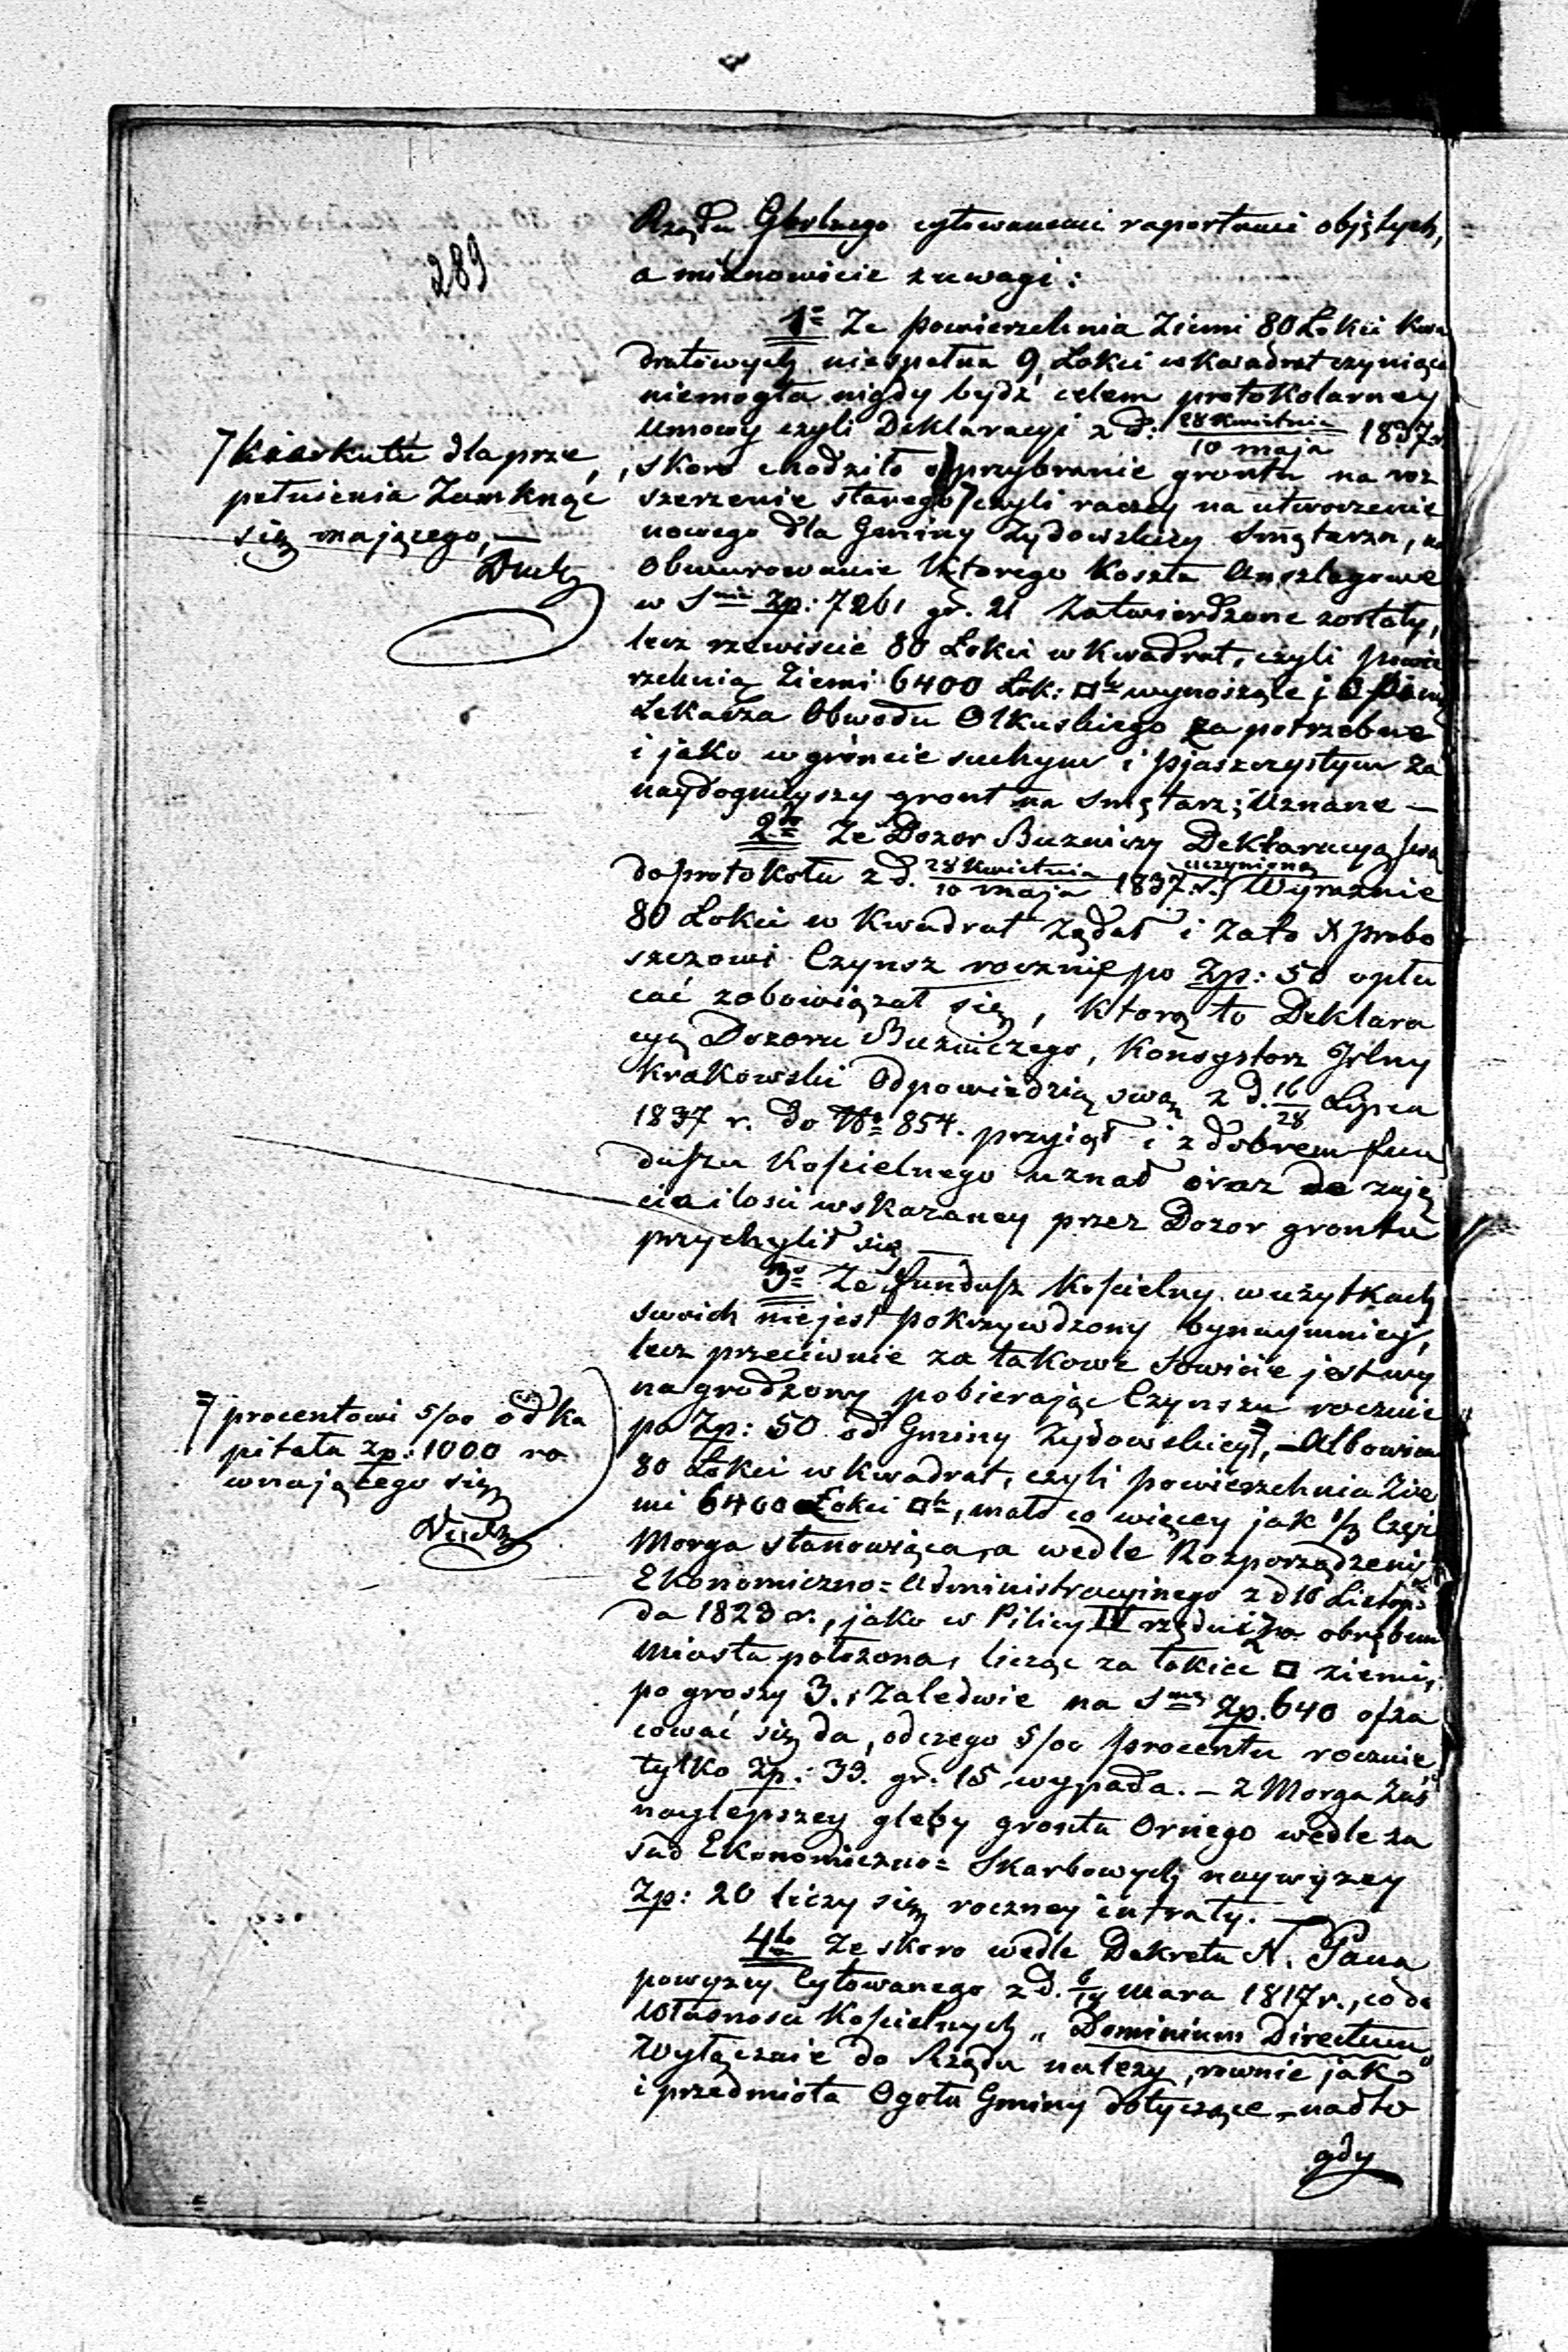 289
Rządu Gbslnego cytowanemi raportami objętych,
a mianowicie z uwagi:
1° Ze powierzchnia Ziemi 80 Łokci Kwa
dratowych niespełna 9 Łokci w Kwadrat czyniąca
niemogła nigdy bydź celem protokolarney
Umowy czyli Deklaracyi z d: 28 Kwietnia / 10 maja 1837 r.
skoro chodziło o przybranie gruntu na roz
szerzenie starego 7 czyli raczey na utworzenie
nowego dla Gminy Zydowskiey Smętarza, na
Obmurowanie którego Koszta Anszlagowe
w Smie Zp: 7261 gr. 21 Zatwierdzone zostały,
lecz rzewiscie 80 Łokci w Kwadrat, czyli powie
rzchnią Ziemi 6400 Łok: □h wynoszące j
Lekarza Obwodu Olkuskiego za potrzebne
i jako w gróncie suchym i pjaszczystym za
naydogodnieyszy gront na Smętarz; Uznane —
7 kierkutu dla prze
pełnienia Zamknąć
się mającego, —
2do Ze Dozor Bużniczy Deklaracyą swą
do protokołu z d. 28 Kwietnia / 10 maja 1837 r. uczynioną Wyraznie
80 Łokci w Kwadrat Żądał i Zato X probo
szczowi Czynsz rocznie po Zp: 50 opła
cać zobowiązał się, Którą to Deklara
cyą Dozoru Bużniczego, Konsystorz Jrlny
Krakowski Odpowiedzią swą z d. 16/28 Lipca
1837 r. do No 854. przyjął i z dobrem fun
duszu Kościelnego uznał oraz do zaję
cia ilosci wskazaney przez Dozor grontu
przychylił się —
3o Ze fundusz Kościelny w użytkach
swoich niejest pokrzywdzony bynaymniey,
lecz przeciwnie za takowe Sowicie jest wy
nagrodzony pobierając Czynszu rocznie
po Zp: 50 od Gminy Zydowskiey 7, — Albowiem
80 Łokci w Kwadrat, czyli powierzchnia Zie
mi 6400 Łokci □h, mało co więcey jak 1/3 Częś
Morga stanowiąca, a wedle Rozporządzenia
Ekonomiczno = Administracyinego z d 10 Listopa
da 1823 r., jako w Pilicy IV rzędu i za obrębem
Miasta położona, licząc za łokieć □ ziemi,
po groszy 3., Zaledwie na Smę Zp. 640 osza
cować się da, od czego 5/00 procentu rocznie,
tylko Zp: 33. gr: 15 wypada. — Z Morga Zaś
naylepszey gleby grontu Ornego wedle za
sad Ekonomiczno = Skarbowych naywyżey
Zp: 20 liczy się roczney intraty. —
7 procentowi 5/00 od Ka
pitała zp: 1000 ro
wnającego się
4to Ze skoro wedle Dekretu N. Pana
powyżey Cytowanego z d. 6/18 Marca 1817 r., co do
Własnosci Kościelnych „Dominium Directum"
Wyłącznie do Rządu należy, rownie jako
i przedmiota Ogołu Gminy dotyczące, — nadto
gdy